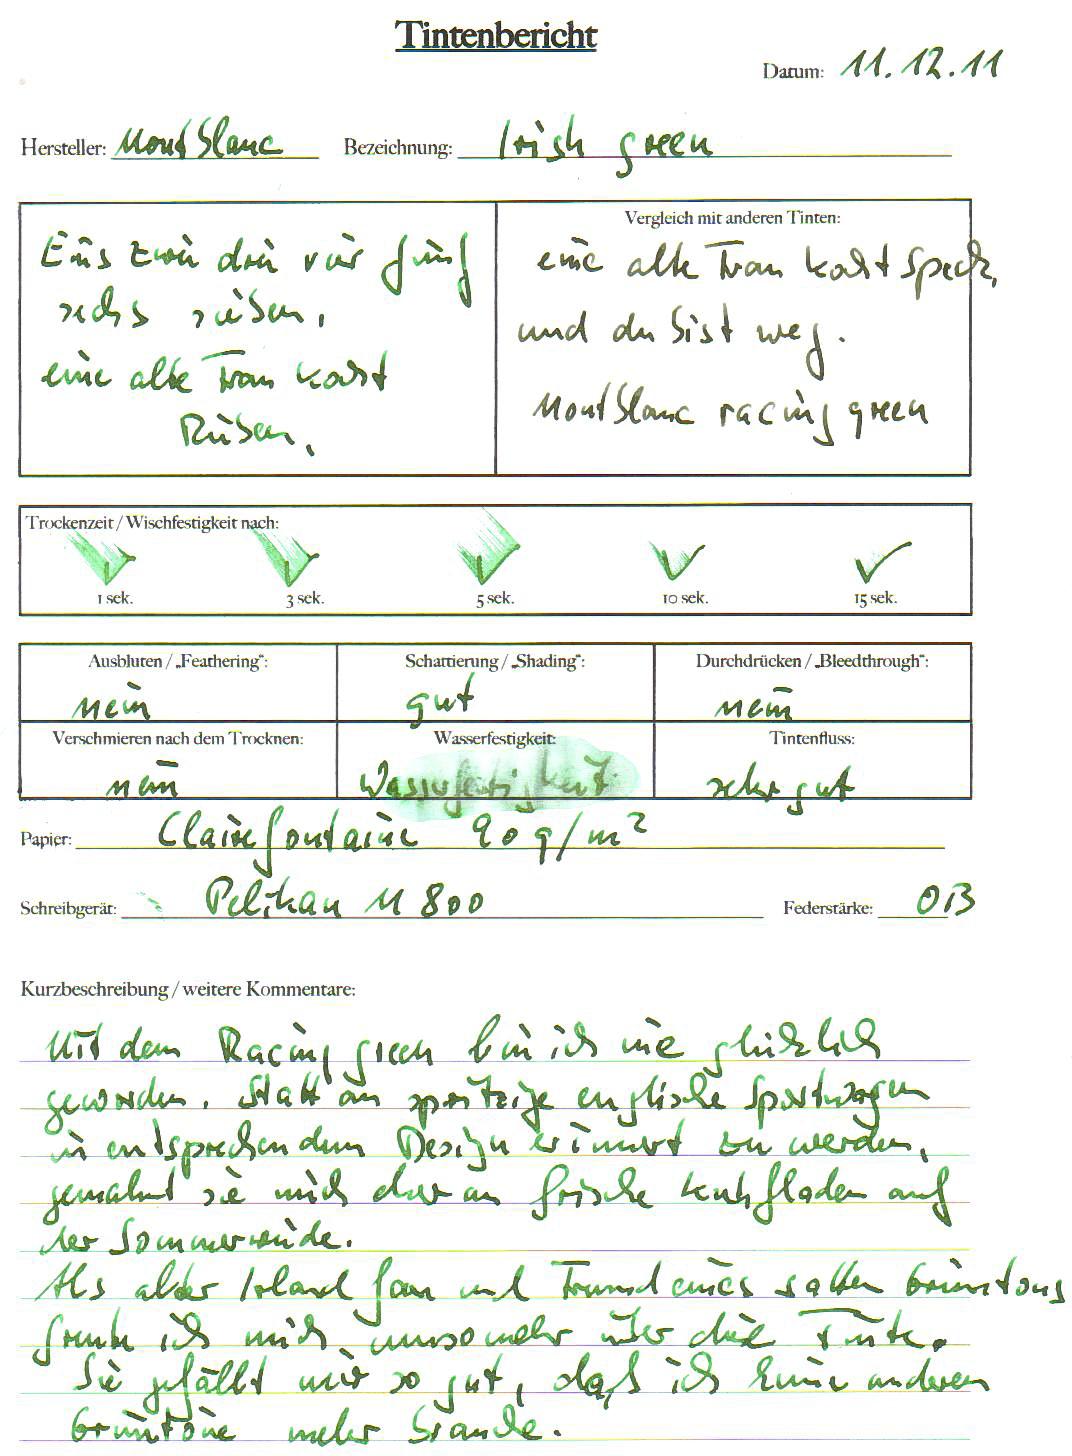 Tintenbericht
Datum: 11.12.11
Hersteller: Montblanc Bezeichnung: Irish green
Eins zwei drei vier fünf
sechs sieben,
eine alte Frau kocht
Rüben,
Vergleich mit anderen Tinten:
eine alte Frau kocht Speck,
und du bist weg.
Montblanc racing green
Trockenzeit / Wischfestigkeit nach:
1 sek. 3 sek. 5 sek. 10 sek. 15 sek.
Ausbluten / „Feathering“: Schattierung / „Shading“: Durchdrücken / „Bleedthrough“:
nein gut nein
Verschmieren nach dem Trocknen: Wasserfestigkeit: Tintenfluss:
nein Wasserfestigkeit sehr gut
Papier: Clairefontaine 90 g/m²
Schreibgerät: Pelikan M 800 Federstärke: OB
Kurzbeschreibung / weitere Kommentare:
Mit dem Racing green bin ich nie glücklich
geworden. Statt an spritzige englische Sportwagen
in entsprechendem Design erinnert zu werden,
gemahnt sie mich eher an frische Kuhfladen auf
der Sommerweide.
Als alter Irland Fan und Freund eines satten Grüntons
freute ich mich umso mehr über diese Tinte.
Sie gefällt mir so gut, daß ich keine anderen
Grüntöne mehr brauche.